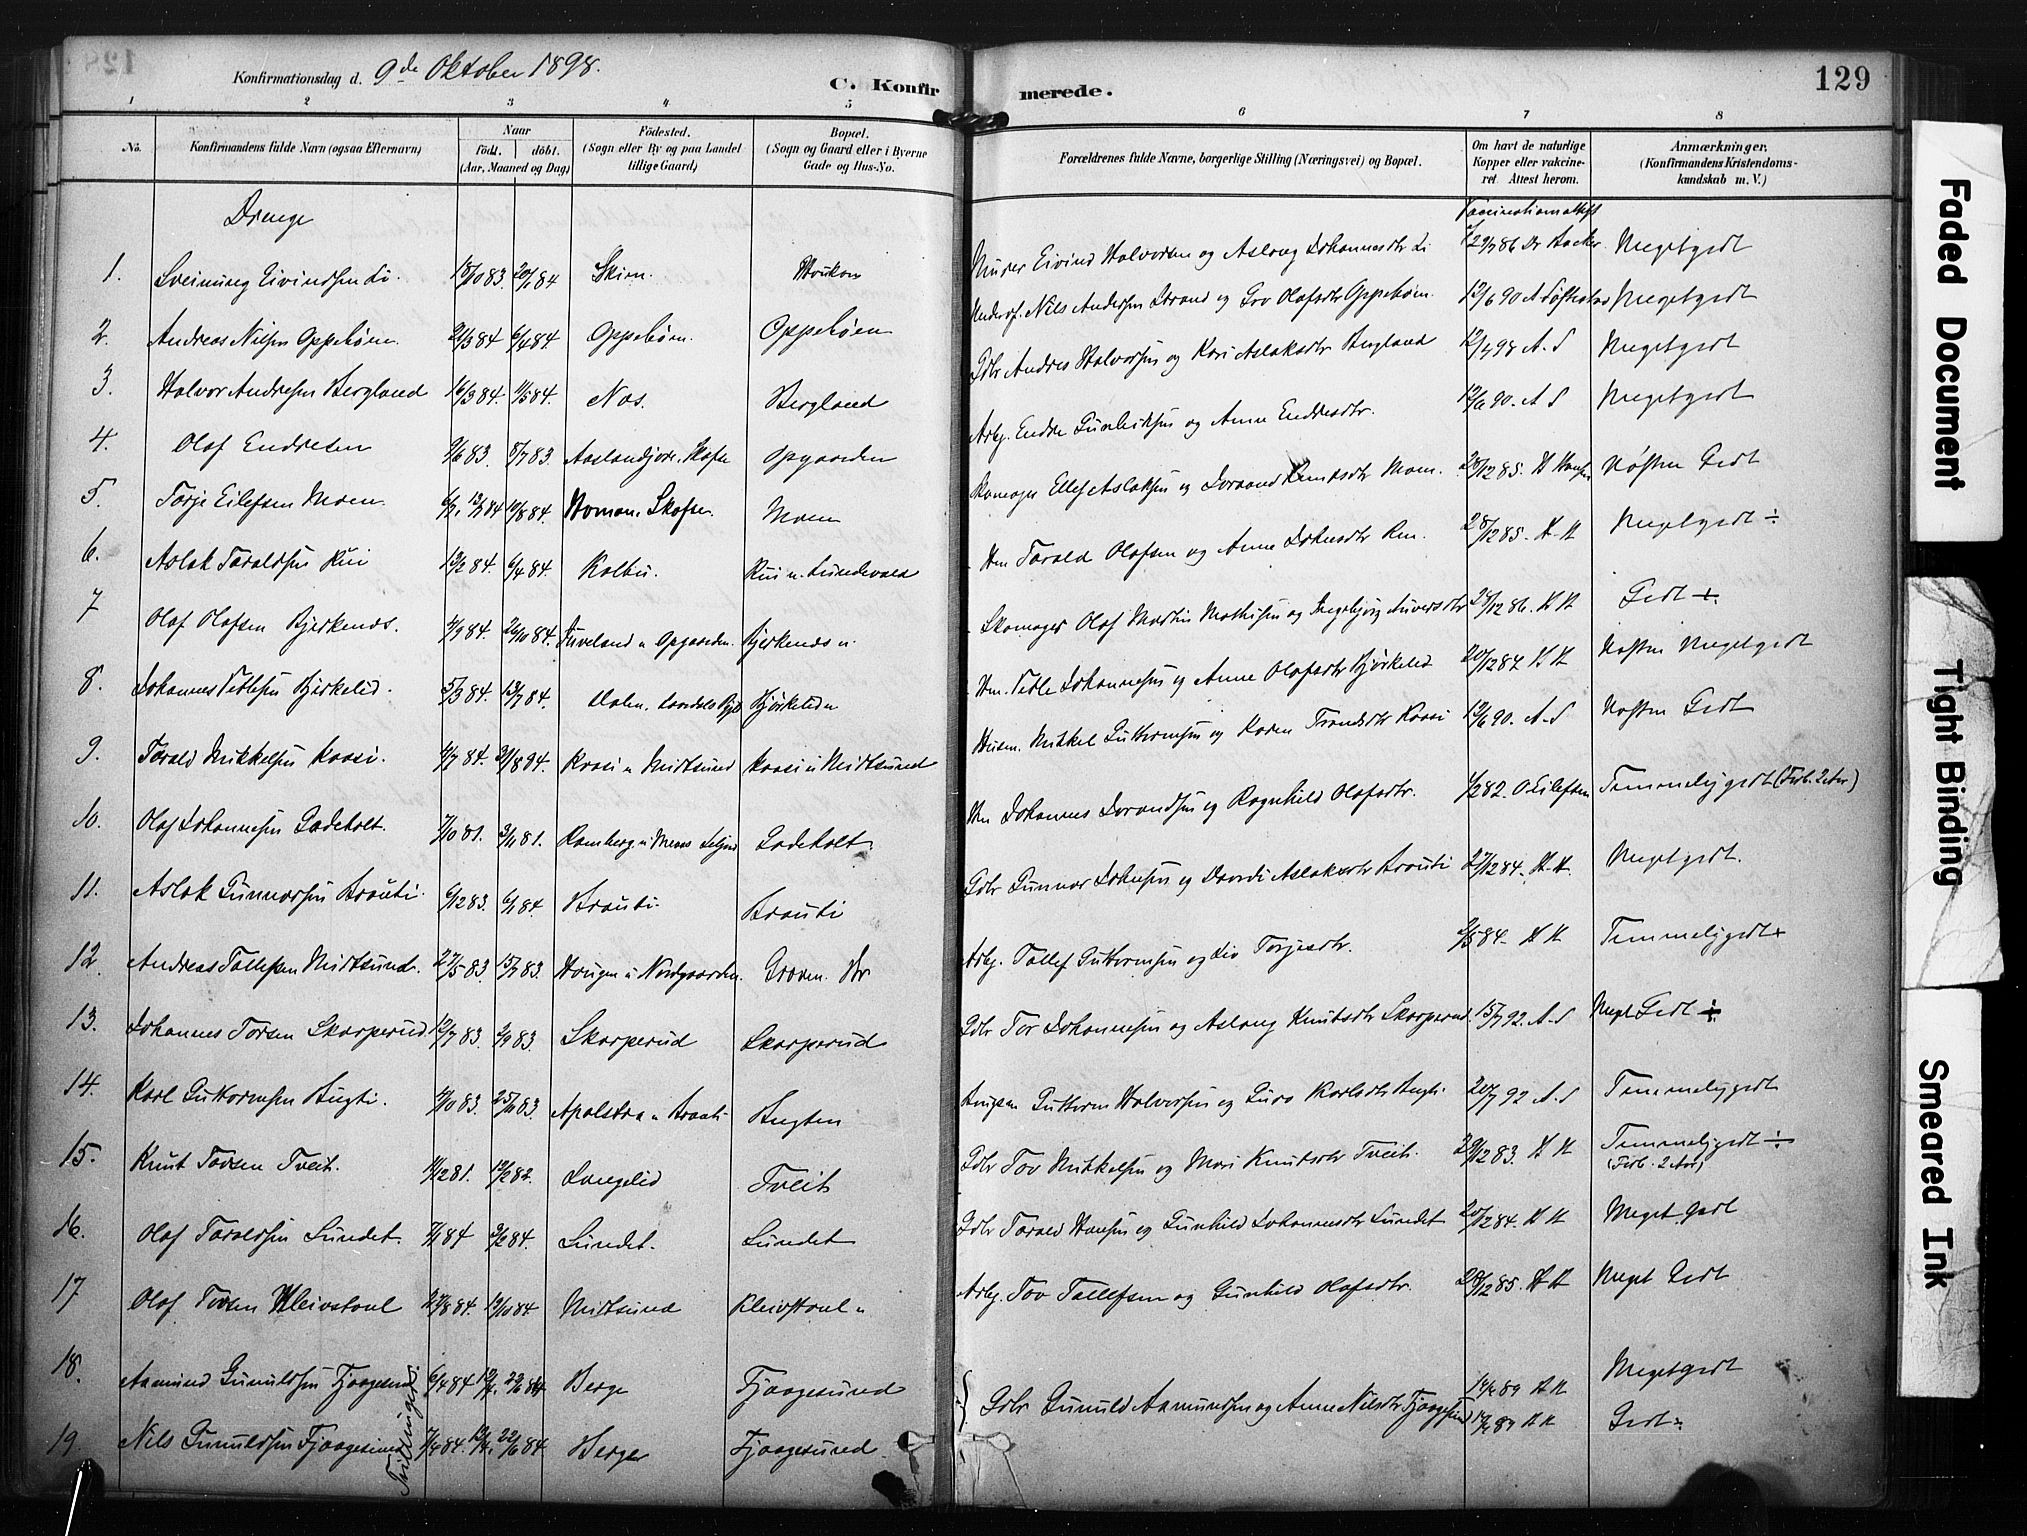 129
Konfirmationsdag d. 9de Oktober 1898.
C. Konfirmerede.
1 2 3 4 5 6 7 8
No.
Konfirmandens fulde Navn (ogsaa Efternavn)
Naar
födt. döbt.
(Aar, Maaned og Dag)
Födested.
(Sogn eller By og paa Landet
tillige Gaard)
Bopæl.
(Sogn og Gaard eller i Byerne
Gade og Hus-No.
Forældrenes fulde Navne, borgerlige Stilling (Næringsvei) og Bopæl.
Om havt de naturlige
Kopper eller vakcine-
ret Attest herom.
Anmærkninger.
(Konfirmandens Kristendoms-
kundskab m. V.)
Drenge
Vaccinationsattest
1. Sveinung Eivindsen Li. 18/10 83. 20/1 84 Skien. Haukom Murer Eivind Halvorsen og Aslaug Johannesdtr Li 29/7 86 Dr Aacker Megetgodt
2. Andreas Nilsen Oppebøen. 21/3 84 6/4 84 Oppebøen. Oppebøen Nils Andersen Strand og Gro Olafsdtr Oppebøen. 12/6 90 A Megetgodt
3. Halvor Andresen Bergland 16/3 84. 11/5 84. Nas. Bergland Gdbr Andres Halvorsen og Kari Aslaksdtr Bergland 12/7 98 A. S Megetgodt
4. Olaf Endresen 9/6 83. 8/7 83. Opgaarden Arb. Endre Gunleiksen og Anne Endresdtr. 12/6 90. A S Megetgodt
5. Torje Eilefsen Moen. 10/8 84. Homan. Skafse. Moen Skomager Ellef Aslaksen og Joraand Knutsdtr Moen. 28/12 85. H Hansen Næsten Godt
6. Aslak Taraldsen Rui 10/2 84. 6/4 84. Kalbu. Rui u. Lundevald Hm Tarald Olafsen og Anne Johnsdtr Rui. 28/12 85. H. H Megetgodt ÷
7 Olaf Olafsen Bjerkenes. 4/9 84. 26/10 84. Juveland u Opgaarden. Bjerkenes u Skomager Olaf Martin Mathisen og Ingebjørg Anversdtr 29/12 86. H H Godt ÷
8. Johannes Tetlesen Bjerkelid. 5/3 84. 13/7 84. Dalen, Laardals Bjerkelid u Hm. Tetle Johannesen og Anne Olafsdtr Bjørkelid 20/12 84 H H Næsten Megetgodt
9. Tarald Mikkelsen Kaasi. 4/7 84. 31/8 94. Kaasi u Midtsund Kaasi u Midtsund Husm. Mikkel Guttormsen og Karen Trondsdtr Kaasi 12/6 90. A. S Næsten Godt
10. Olaf Johannesen Ladeholt. 7/10 81. 3/11 81. Ramberg u Moens Seljord Ladeholt. Hm Johannes Jorandsen og Ragnhild Olafsdtr. 1/2 82. O Eilefsen Temmeliggodt (Forb. 2 Aar)
11. Aslak Gunnarsen Brauti. 6/12 83. 6/1 84. Brauti. Brauti Gdbr Gunnar Johnsen og Dordi Aslaksdtr Brauti 27/12 84. H. H. Megetgodt.
12. Andreas Tallefsen Midtsund. 27/5 83. 15/7 83. Haugen u Nordgaarden. Groven. Hbr Arb. Tallef Guttormsen og Liv Torjesdtr. 2/5 84. H H Temmeliggodt
13. Johannes Torsen Skarperud 12/7 83. 2/9 83. Skarperud Skarperud Gdbr Tor Johannesen og Aslaug Knutsdtr Skarperud. 15/7 92. A. S Meget Godt ÷
14. Karl Guttormsen Bugti. 4/10 83. 25/11 83 Apalstøa u Brauti Bugten Guttorm Halvorsen og Guro Karlsdtr Bugti 20/7 92 A. S Temmeliggodt
15. Knut Tovsen Tveit. 11/12 81. 12/2 82. Langelid Tveit Gdbr Tov Mikkelsen og Mari Knutsdtr Tveit. 29/12 83. H H Temmeliggodt ÷
(Forb. 2 Aar)
16. Olaf Taraldsen Lundet. 7/1 84 3/2 84. Lundet. Lundet Gdbr Tarald Hansen og Gunhild Johannesdtr Lundet 20/12 84. H H Meget Godt
17 Olaf Tovsen Kleivstaul 27/8 84. 19/10 84 Midtsund Kleivstaul u Arb. Tov Tallefsen og Gunhild Olafsdtr. 28/12 85. H H Meget Godt
18. Aamund Gunuldsen Fjaagesund 6/4 84 22/6 84 Berge Fjaagesund Gdbr Gunuld Aamundsen og Anne Nilsdtr Fjaagesund 14/4 89 H H Megetgodt
19. Nils Gunuldsen Fjaagesund 7/4 84. 22/6 84 Berge Fjaagesund 14/4 89 H H Godt
Tvillinger.
Faded Document
Tight Binding
Smeared Ink